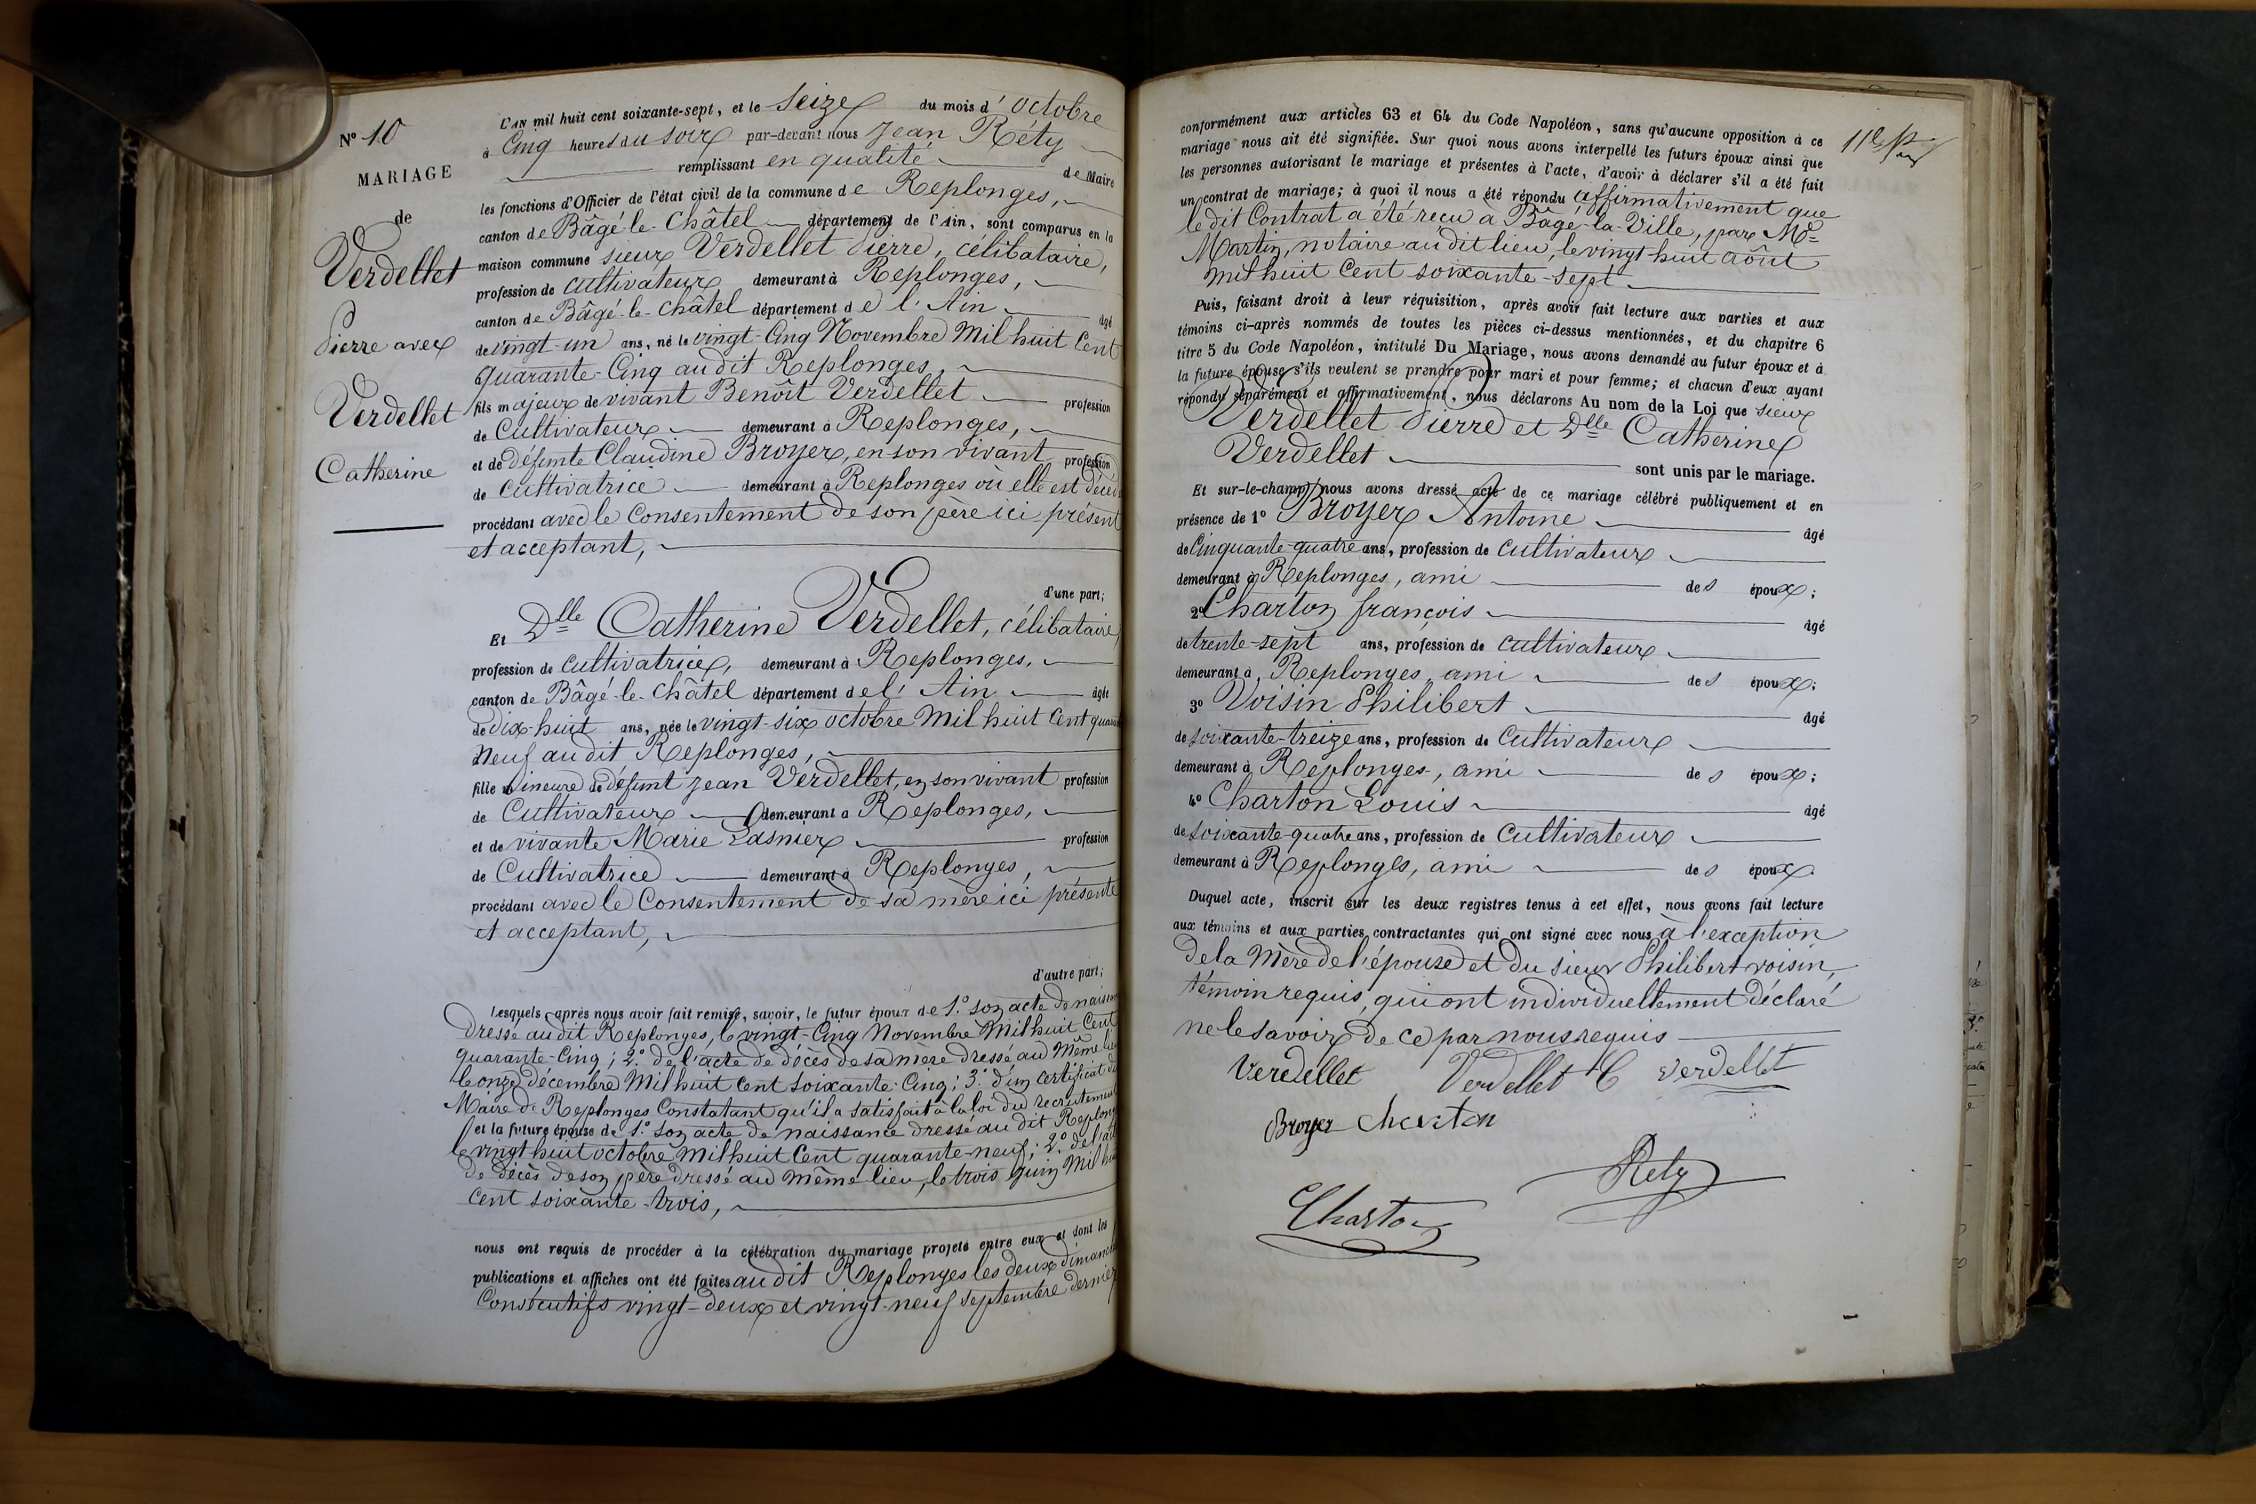 N° 10
MARIAGE
de
Verdellet
Pierre avec
Verdellet
Catherine
L'AN mil huit cent soixante-sept, et le Seize du mois d'octobre
à Cinq heures du soir par-devant nous Jean Réty
remplissant en qualité de Maire
les fonctions d'Officier de l'état civil de la commune de Replonges,
canton de Bâgé-le-Châtel département de l'Ain, sont comparus en la
maison commune sieur Verdellet Pierre, célibataire,
profession de cultivateur demeurant à Replonges,
canton de Bâgé-le-Châtel département de l'Ain âgé
de vingt-un ans, né le vingt-Cinq Novembre Mil huit Cent
quarante-Cinq audit Replonges,
fils majeur de vivant Benoît Verdellet profession
de Cultivateur demeurant à Replonges,
et de défunte Claudine Broyer, en son vivant profession
de cultivatrice demeurant à Replonges où elle est décédée
procédant avec le Consentement de son père ici présent
et acceptant,
d'une part;
Et Dlle Catherine Verdellet, célibataire
profession de cultivatrice, demeurant à Replonges,
canton de Bâgé-le-Châtel département de l'Ain âgée
de dix-huit ans, née le vingt-six octobre Mil huit Cent quarante
Neuf audit Replonges,
fille mineure de défunt Jean Verdellet, en son vivant profession
de Cultivateur demeurant à Replonges,
et de vivante Marie Lasnier profession
de Cultivatrice demeurant à Replonges,
procédant avec le Consentement de sa mère ici présente
et acceptant,
d'autre part;
Lesquels après nous avoir fait remise, savoir, le futur époux de 1.° son acte de naissance
dressé audit Replonges, le vingt-Cinq Novembre Mil huit Cent
quarante-Cinq; 2.° de l'acte de décès de sa mère dressé au Même lieu
le onze décembre Mil huit Cent soixante-Cinq; 3.° d'un certificat du
Maire de Replonges Constatant qu'il a satisfait à la loi du recrutement
et la future épouse de 1.° son acte de naissance dressé audit Replonges
le vingt huit octobre Mil huit Cent quarante-neuf; 2.° de l'acte
de décès de son père dressé au même lieu, le trois Juin Mil huit
cent soixante-trois,
nous ont requis de procéder à la célébration du mariage projeté entre eux et dont les
publications et affiches ont été faites audit Replonges les deux dimanches
Consécutifs vingt-deux et vingt-neuf septembre dernier
conformément aux articles 63 et 64 du Code Napoléon, sans qu'aucune opposition à ce
mariage nous ait été signifiée. Sur quoi nous avons interpellé les futurs époux ainsi que
les personnes autorisant le mariage et présentes à l'acte, d'avoir à déclarer s'il a été fait
un contrat de mariage; à quoi il nous a été répondu affirmativement que
le dit Contrat a été reçu à Bâgé-la-Ville, par Me
Martin, notaire au dit lieu, le vingt huit août
mil huit Cent soixante-sept
Puis, faisant droit à leur réquisition, après avoir fait lecture aux parties et aux
témoins ci-après nommés de toutes les pièces ci-dessus mentionnées, et du chapitre 6
titre 5 du Code Napoléon, intitulé Du Mariage, nous avons demandé au futur époux et à
la future épouse s'ils veulent se prendre pour mari et pour femme; et chacun d'eux ayant
répondu séparément et affirmativement, nous déclarons Au nom de la Loi que sieur
Verdellet Pierre et Dlle Catherine
Verdellet sont unis par le mariage.
Et sur-le-champ nous avons dressé acte de ce mariage célébré publiquement et en
présence de 1° Broyer Antoine âgé
de Cinquante-quatre ans, profession de cultivateur
demeurant à Replonges, ami des époux;
2° Charton françois âgé
de trente-sept ans, profession de cultivateur
demeurant à Replonges, ami des époux;
3° Voisin Philibert âgé
de soixante-treize ans, profession de Cultivateur
demeurant à Replonges, ami des époux;
4° Charton Louis âgé
de soixante-quatre ans, profession de Cultivateur
demeurant à Replonges, ami des époux
Duquel acte, inscrit sur les deux registres tenus à cet effet, nous avons fait lecture
aux témoins et aux parties contractantes qui ont signé avec nous à l'exception
de la Mère de l'épouse et du sieur Philibert voisin,
témoin requis, qui ont individuellement déclaré
ne le savoir de ce par nous requis
Verdellet Verdellet C Verdellet
Broyer Charton
Réty
Charton